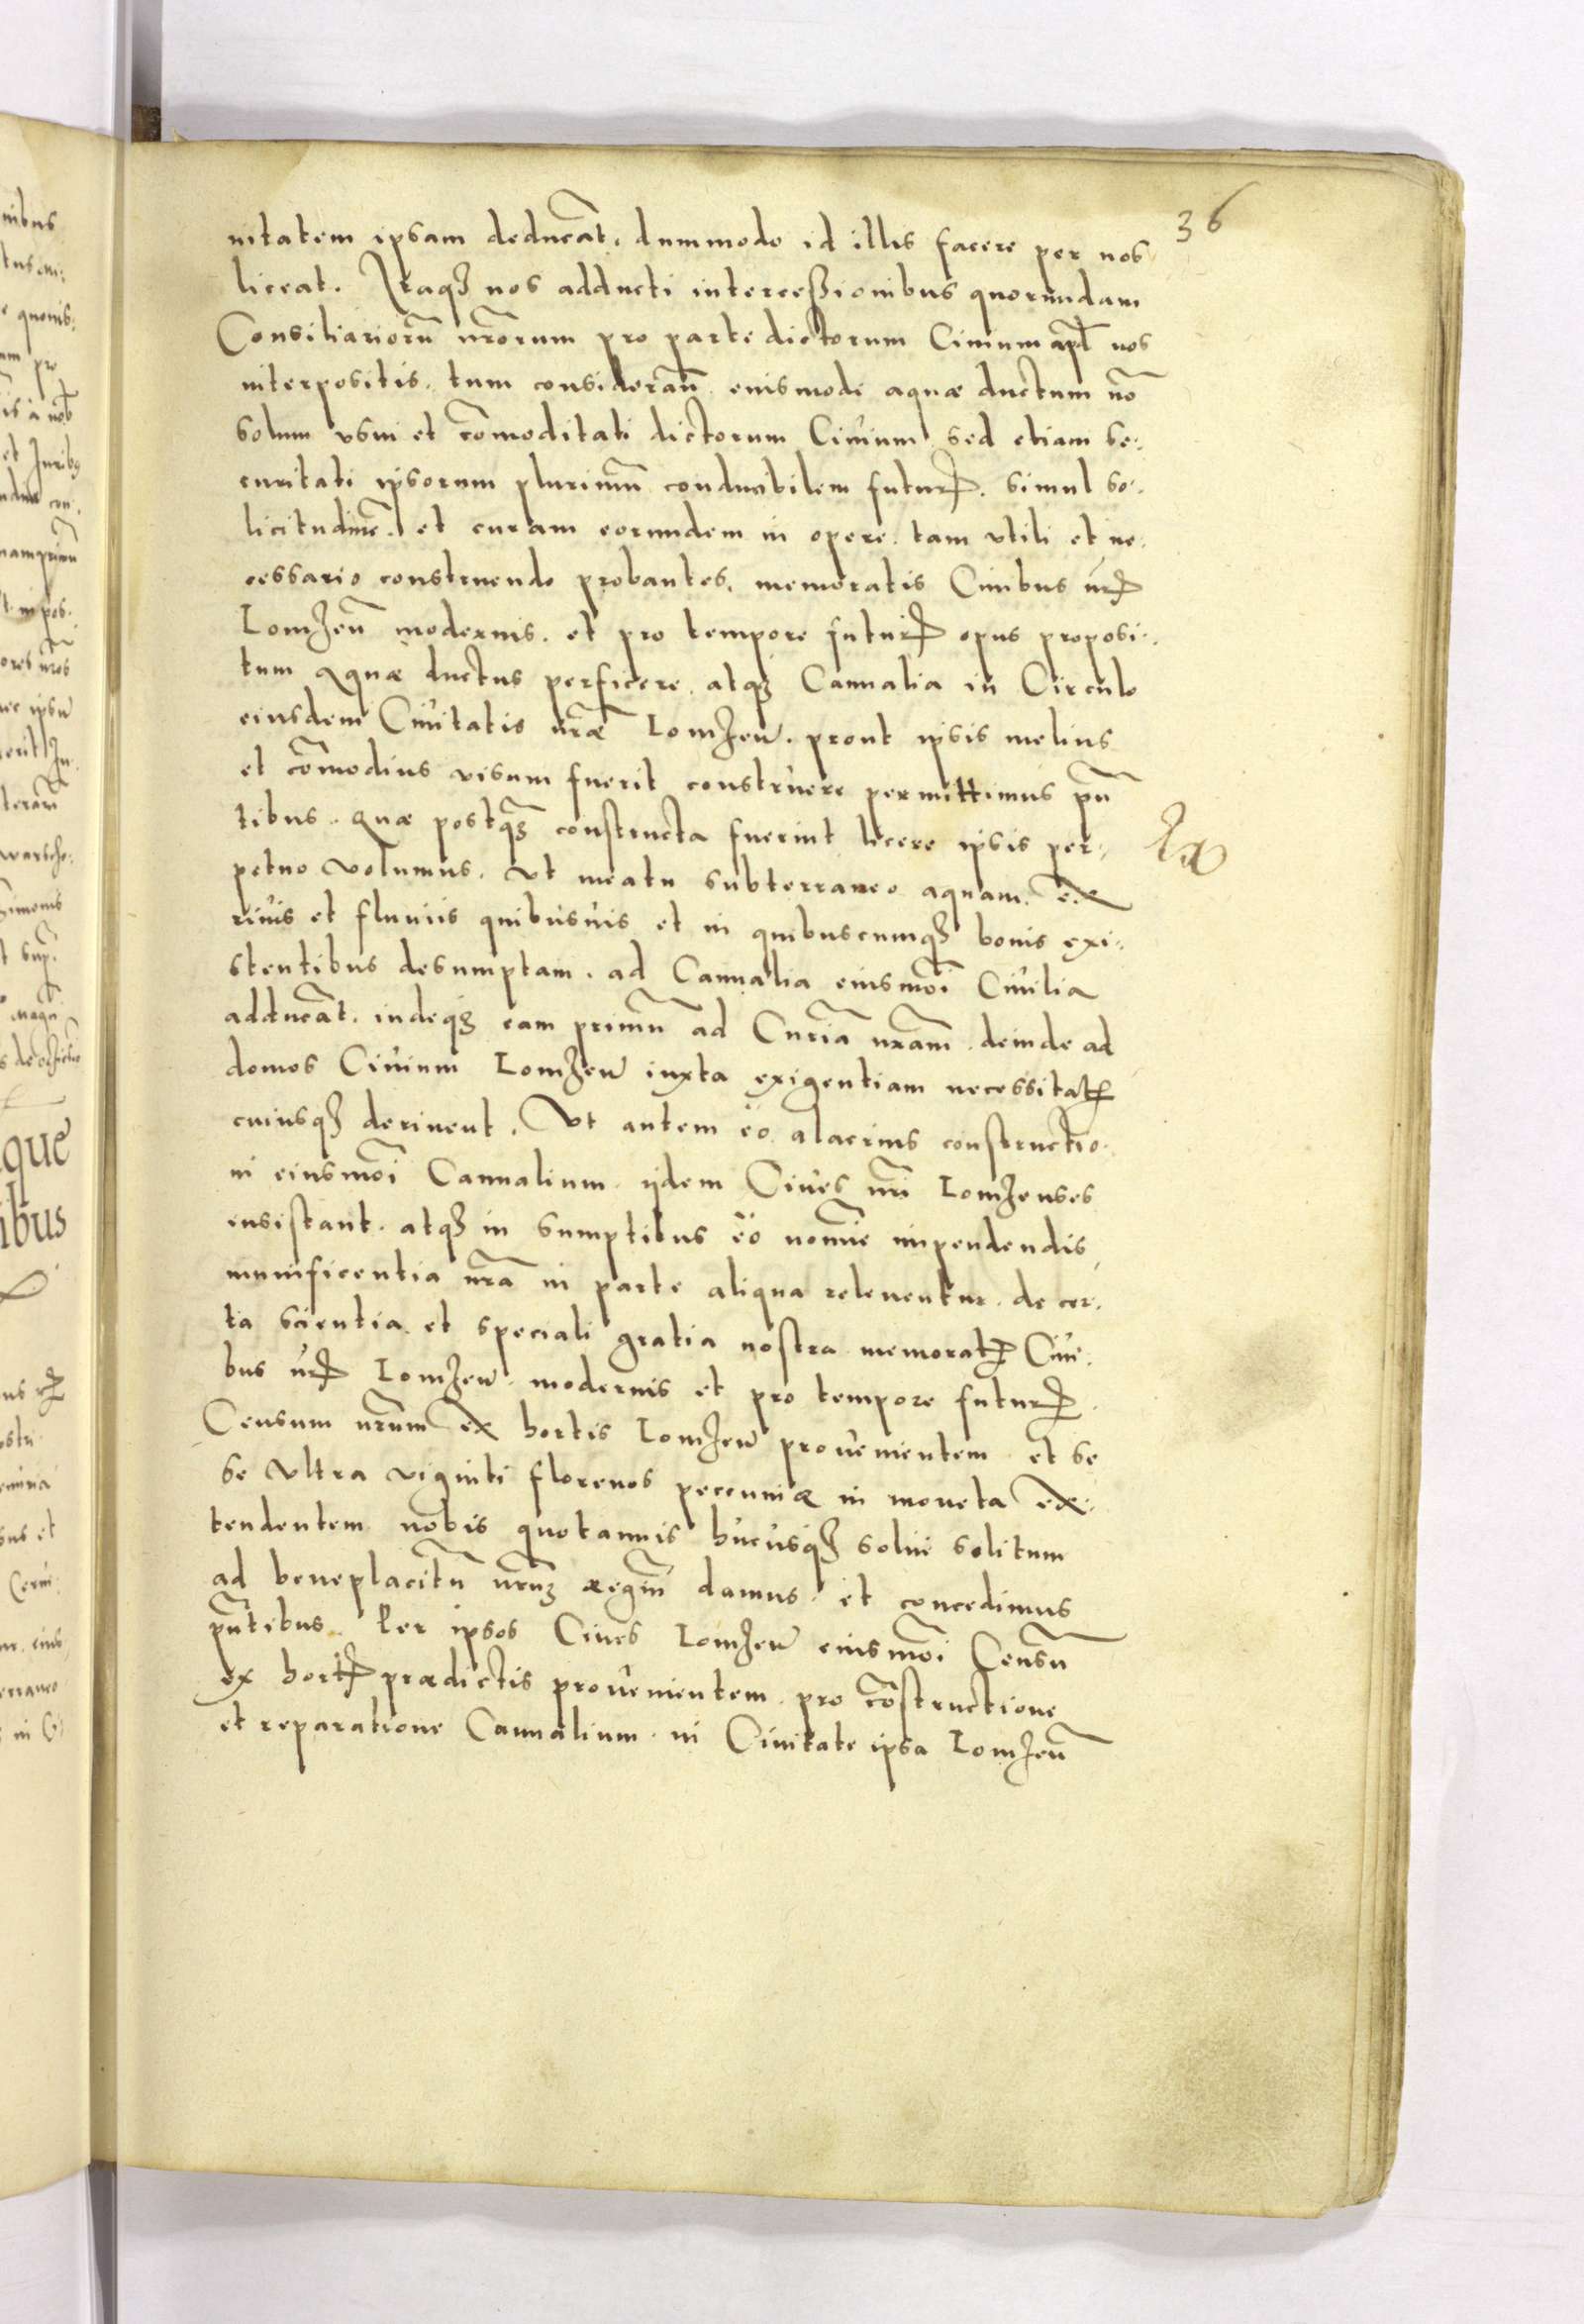 36
uitatem ipsam deducāt. dummodo id illis facere per nos
liceat. Itaqꝫ nos adducti intercessionibus quorundam
Consiliariorū nr̄orum pro parte dictorum Ciuium apd̄ nos
interpositis. tum considerān̄. eiusmodi aquæ ductum nō
solum vsui et cōmoditati dictorum Ciuium sed etiam se-
curitati ipsorum plurimū conducibilem futurꝭ. simul so-
licitudinē. et curam eorundem in opere. tam vtili et ne-
cessario construendo probantes. memoratis Ciuibus nr̄ꝭ
Lomzeñ modernis. et pro tempore futurꝭ opus proposi-
tum Aquæ ductus perficere. atqꝫ Cannalia in Circulo
eiusdem Ciuitatis nr̄æ Lomzeñ. prout ipsis melius
et cōmodius visum fuerit construere permittimus pn̄
tibus. Quæ postqꝫ constructa fuerint licere ipsis per-
petuo volumus. vt meatu subterraneo aquam. ex
riuis et fluuiis quibusuis et in quibuscumqꝫ bonis exi-
stentibus desumptam. ad Cannalia eiusmōi Ciuilia
adducāt. indeqꝫ eam primū ad Curiā nr̄am. deinde ad
domos Ciuium Lomzeñ iuxta exigentiam necessitatꝭ
cuiusqꝫ deriuent. Vt autem eo alacrius constructio-
ni eiusmōi Cannalium. ijdem Ciues nr̄i Lomzenses
insistant. atqꝫ in sumptibus eo nomīe impendendis,
munificentia nr̄a in parte aliqua releuentur. de cer-
ta scientia. et speciali gratia nostra memoratꝭ Ciui-
bus nr̄ꝭ Lomzeñ. modernis et pro tempore futurꝭ
Censum nr̄um ex hortis Lomzeñ prouenientem et se
se vltra viginti florenos pecuniæ in moneta ex-
tendentem nobis quotannis hucusqꝫ solui solitum
ad beneplacitū nr̄mꝫ regiū damus. et concedimus
pn̄tibus. Per ipsos Ciues Lomzeñ eiusmōi Censū
ex hortꝭ prædictis prouenientem. pro cōstructione
et reparatione Cannalium. in Ciuitate ipsa Lomzeñ